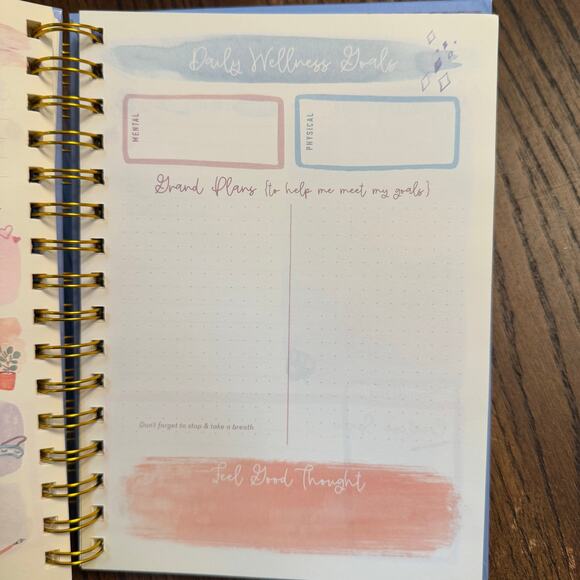 Daily Wellness Goals
MENTAL
PHYSICAL
Grand Plans {to help me meet my goals}
Don't forget to stop & take a breath
Feel Good Thought